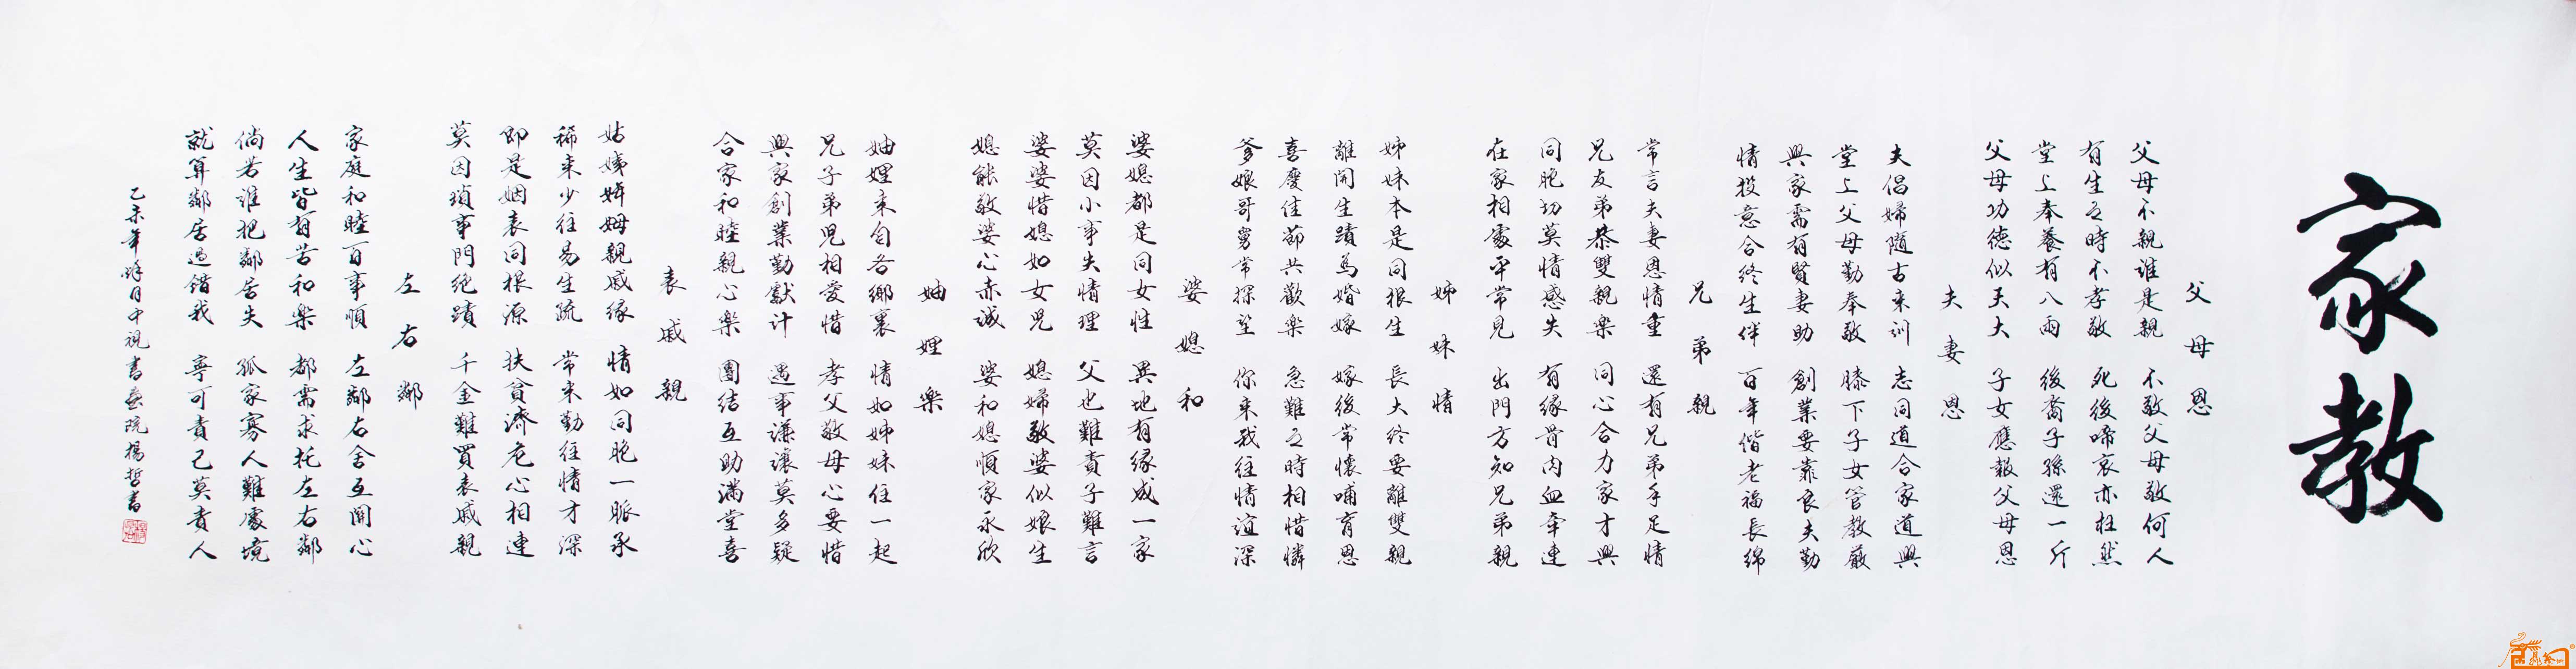 家教
父母恩
父母不親誰是親 不敬父母敬何人
有生之時不孝敬 死後啼哀亦枉然
堂上奉養有八兩 後裔子孫還一斤
父母功德似天大 子女應報父母恩
夫妻恩
夫倡婦隨古來訓 志同道合家道興
堂上父母勤奉敬 膝下子女管教嚴
興家需有賢妻助 創業要靠良夫勤
情投意合終生伴 百年偕老福長綿
兄弟親
常言夫妻恩情重 還有兄弟手足情
兄友弟恭雙親樂 同心合力家才興
同胞切莫情感失 有緣骨肉血牽連
在家相處平常見 出門方知兄弟親
姊妹情
姊妹本是同根生 長大終要離雙親
離開生蹟為婚嫁 嫁後常懷哺育恩
喜慶佳節共歡樂 急難之時相惜憐
爹娘哥舅常探望 你來我往情誼深
婆媳和
婆媳都是同女性 異地有緣成一家
莫因小事失情理 父也難責子難言
婆婆惜媳如女兒 媳婦敬婆似娘生
媳能敬婆心赤誠 婆和媳順家永欣
妯娌樂
妯娌來自各鄉裏 情如姊妹住一起
兄子弟兒相愛惜 孝父敬母心要惜
興家創業勤獻计 遇事谦讓莫多疑
合家和睦親心樂 團结互助滿堂喜
表戚親
姑姨妗姆親戚缘 情如同胞一脈承
稀來少往易生疏 常來勤往情才深
即是姻表同根源 扶貧濟危心相連
莫因瑣事門绝蹟 千金難買表戚親
左右鄰
家庭和睦百事順 左鄰右舍互開心
人生皆有苦和樂 都需求托左右鄰
倘若谁把鄰居失 孤家寡人難處境
就算鄰居過错我 寧可責己莫責人
乙未年 月中视書藝院楊哲書